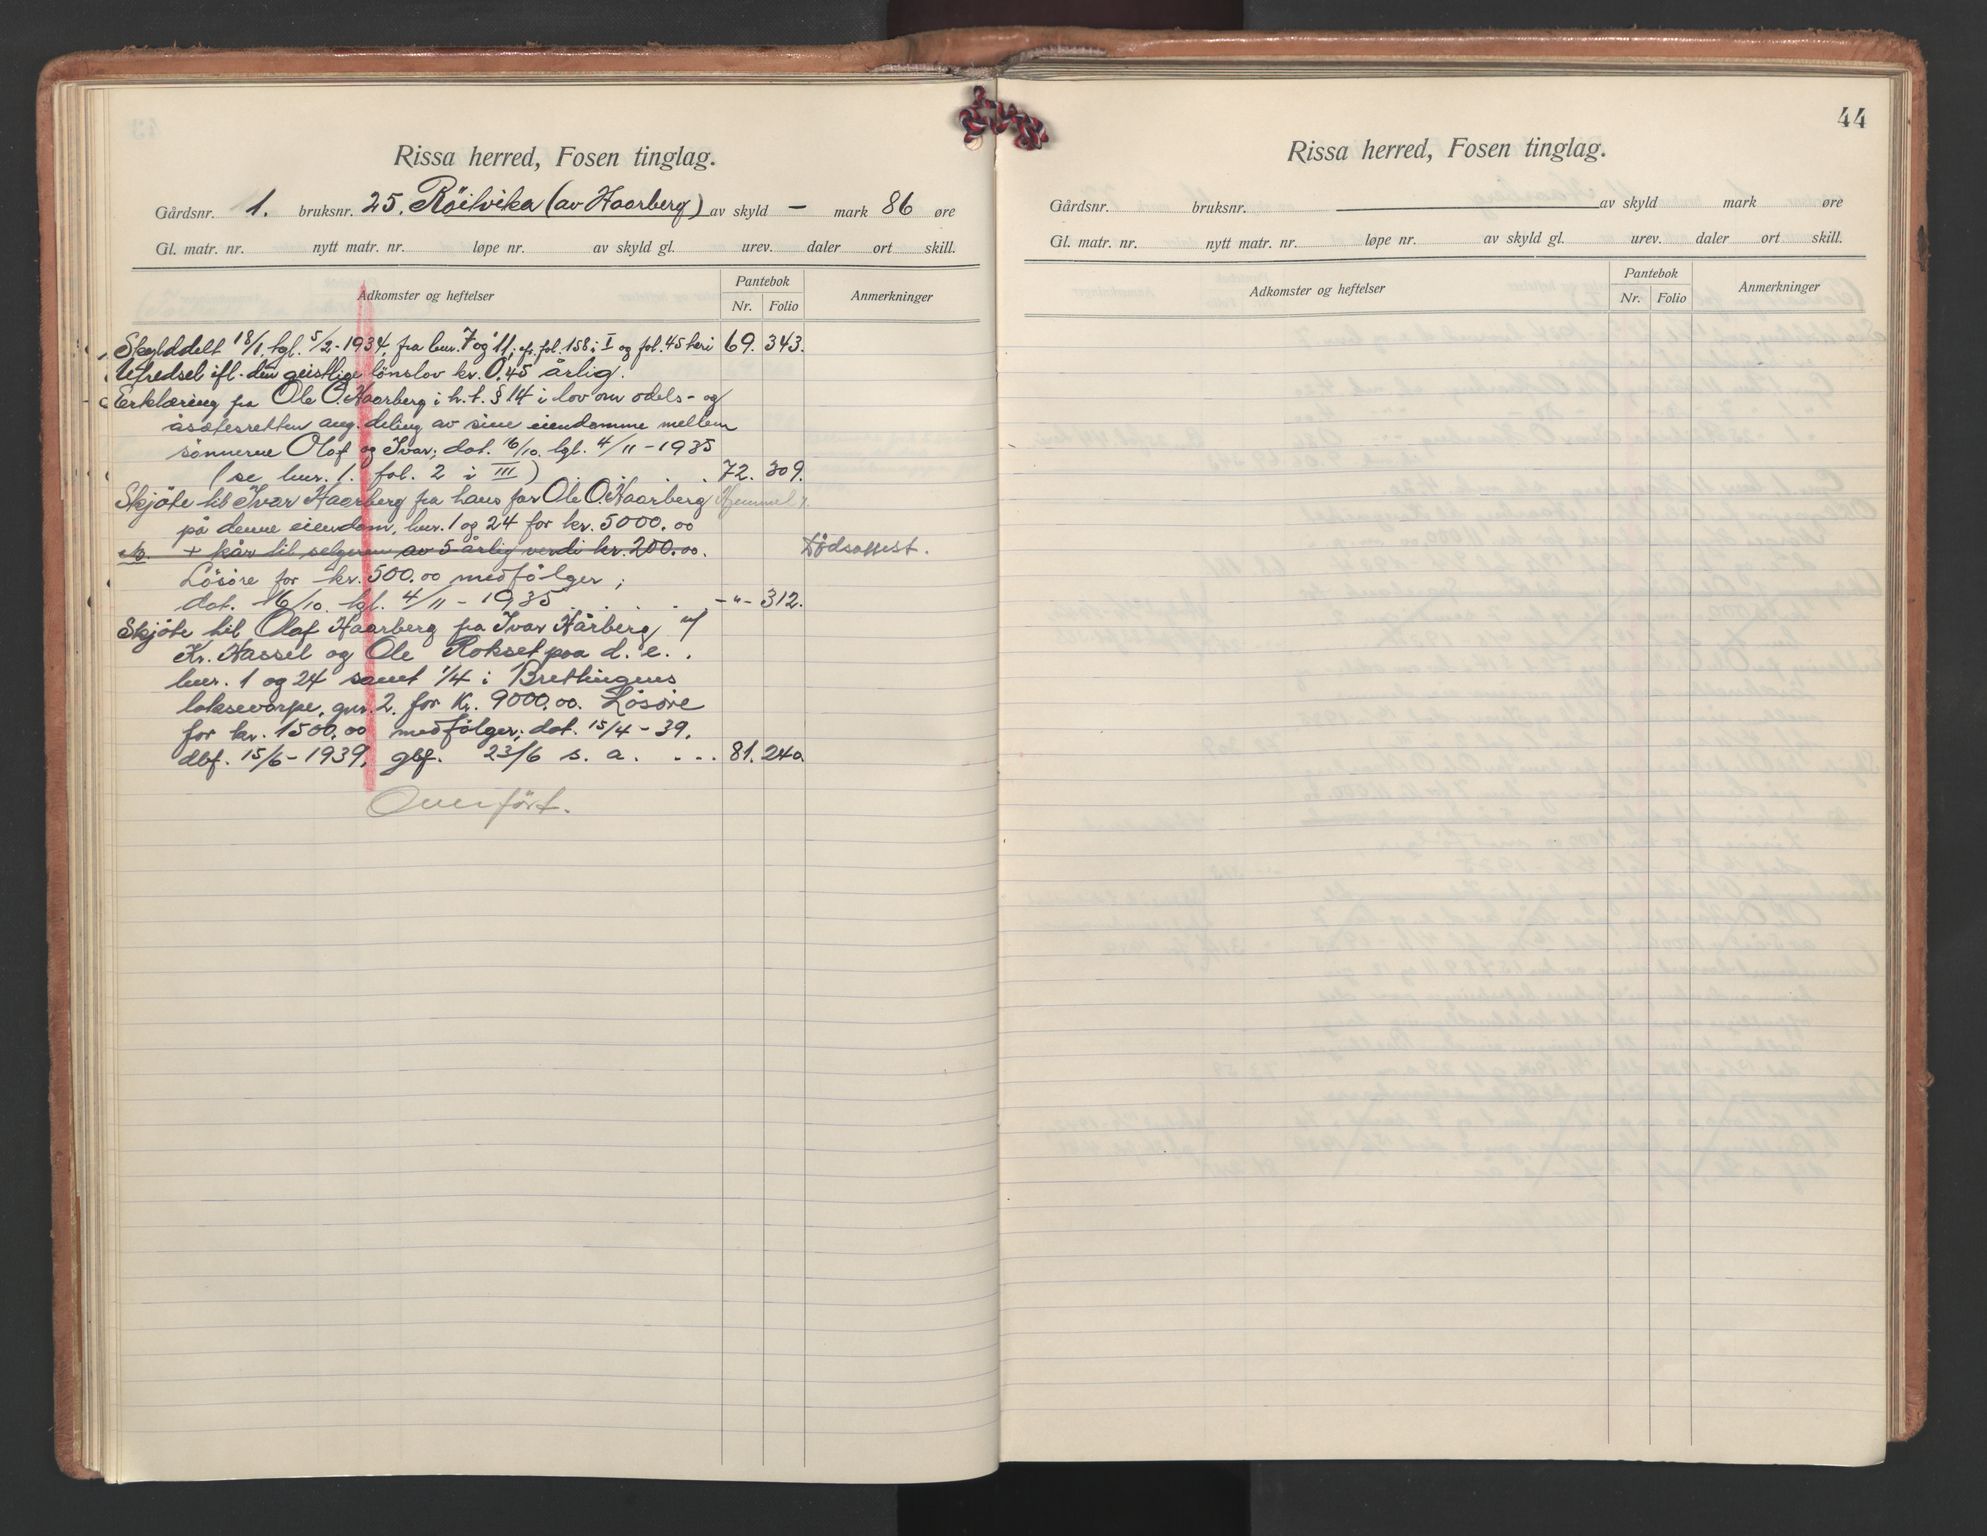 Rissa herred, Fosen tinglag.
Gårdsnr. 1. bruksnr. 25. Röilvika (av Haarberg) av skyld — mark 86 øre
Gl. matr. nr. nytt matr. nr. løpe nr. av skyld gl. urev. daler ort skill.
Adkomster og heftelser Pantebok Anmerkninger
Nr. Folio
Skylddelt 18/1, tgl. 5/2-1934, fra bnr. 7 og 11, cfr. fol. 158 i I og fol. 45 heri 69. 343.
Utredsel ifl. den geistlige lönslov kr. 0.45 årlig.
Erklæring fra Ole O. Haarberg i h.t. § 14 i lov om odels- og
åsætesretten ang. deling av sine eiendomme mellem
sønnerne Olaf og Ivar; dat. 16/10. tgl. 4/11-1935
(se bnr. 1. fol. 2 i III) . . . . 72. 309.
Skjöte til Ivar Haarberg fra hans far Ole O. Haarberg Hjemmel
på denne eiendom, bnr. 1 og 24 for kr. 5000.00
+ kår til selgeren av 5 årlig verdi kr. 200.00. Dødsattest.
Lösöre for kr. 500.00 medfölger;
dat. 16/10. tgl. 4/11 - 1935 . . . . -"- 312.
Skjöte til Olaf Haarberg fra Ivar Hårberg v/
Kr. Hassel og Ole Rokset paa d. e. .
bnr. 1 og 24 samt 1/4 i Brettingens
laksevarpe, gnr. 2. for Kr. 9000.00. Lösöre
for kr. 1500.00 medfölger; dat. 15/4 - 39.
dbf. 15/6 - 1939. gbf. 23/6 s. a. . . . 81. 240.
Overfört.
44
Rissa herred, Fosen tinglag.
Gårdsnr. bruksnr. av skyld mark øre
Gl. matr. nr. nytt matr. nr. løpe nr. av skyld gl. urev. daler ort skill.
Adkomster og heftelser Pantebok Anmerkninger
Nr. Folio